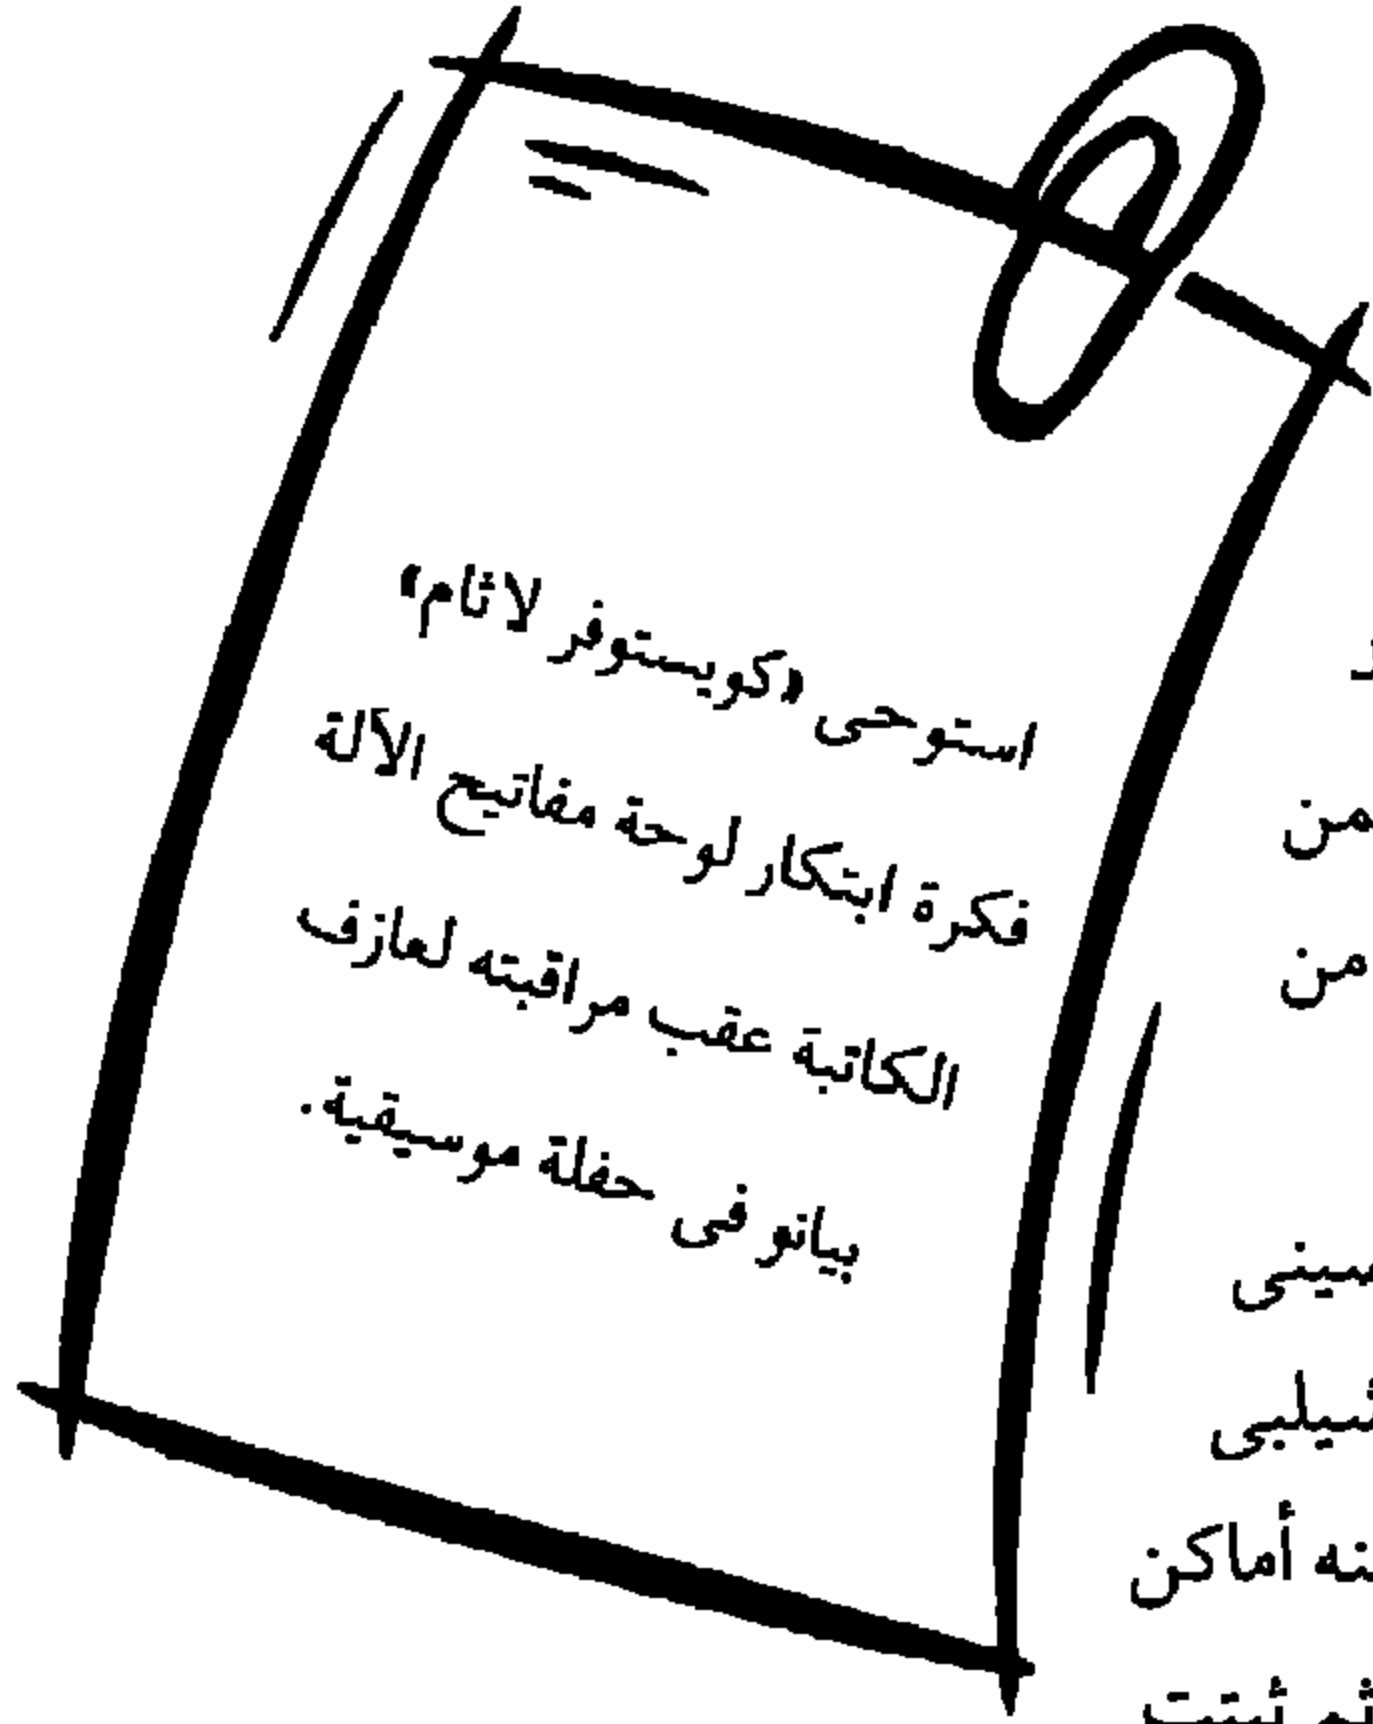 استوحى «كويستوفر لاثام»
فكرة ابتكار لوحة مفاتيح الآلة
الكاتبة عقب مراقبته لعازف
بيانو فى حفلة موسيقية.
من
من
أماكن